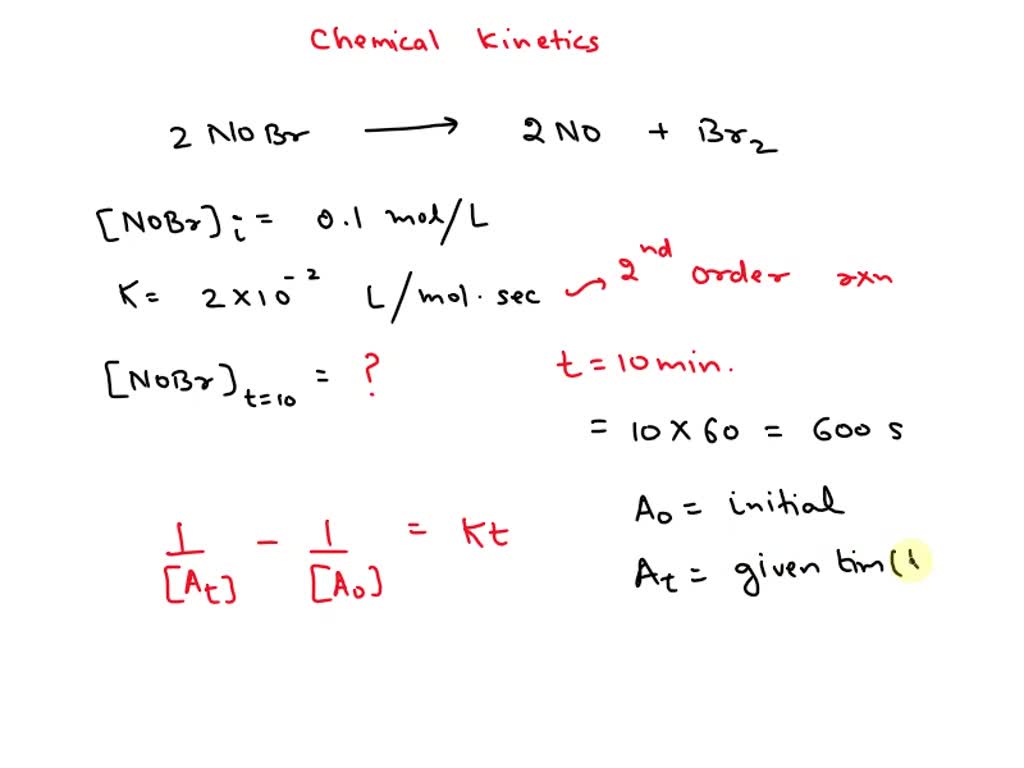 Chemical Kinetics
2 NOBr ⟶ 2 NO + Br₂
[NOBr]ᵢ = 0.1 mol/L
K = 2×10⁻² L/mol·sec → 2ⁿᵈ order rxn
[NOBr]ₜ₌₁₀ = ?
t = 10 min.
= 10 × 60 = 600 s
A₀ = initial
1/[Aₜ] - 1/[A₀] = Kt
Aₜ = given tim(